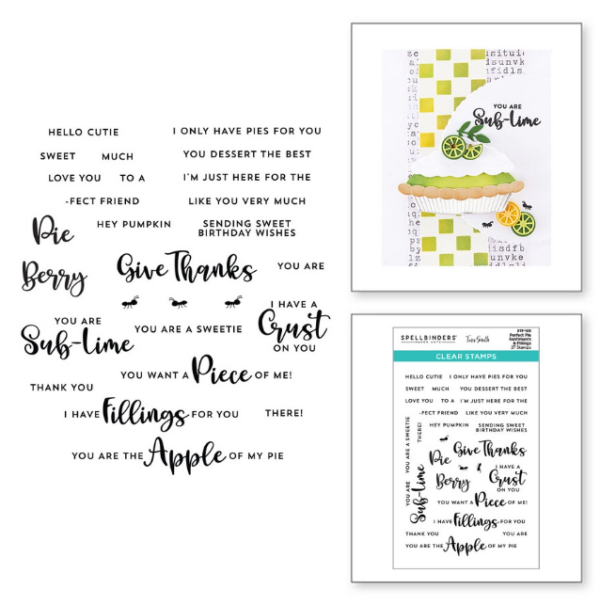 HELLO CUTIE
I ONLY HAVE PIES FOR YOU
SWEET
MUCH
YOU DESSERT THE BEST
LOVE YOU
TO A
I'M JUST HERE FOR THE
-FECT FRIEND
LIKE YOU VERY MUCH
HEY PUMPKIN
SENDING SWEET
BIRTHDAY WISHES
Pie
Berry
Give Thanks
YOU ARE
YOU ARE
Sub-lime
YOU ARE A SWEETIE
I HAVE A
Crust
ON YOU
YOU WANT A Piece OF ME!
THANK YOU
I HAVE Fillings FOR YOU
THERE!
YOU ARE THE Apple OF MY PIE
YOU ARE
Sub-lime
SPELLBINDERS
Perfect Pie
Sentiments
& Fillings
27 Stamps
CLEAR STAMPS
HELLO CUTIE
I ONLY HAVE PIES FOR YOU
SWEET
MUCH
YOU DESSERT THE BEST
LOVE YOU
TO A
I'M JUST HERE FOR THE
-FECT FRIEND
LIKE YOU VERY MUCH
HEY PUMPKIN
SENDING SWEET
BIRTHDAY WISHES
YOU ARE A SWEETIE
THERE!
Pie
Give Thanks
Berry
I HAVE A
Crust
ON YOU
YOU ARE
Sub-lime
YOU WANT A Piece OF ME!
I HAVE Fillings FOR YOU
THANK YOU
YOU ARE
YOU ARE THE Apple OF MY PIE